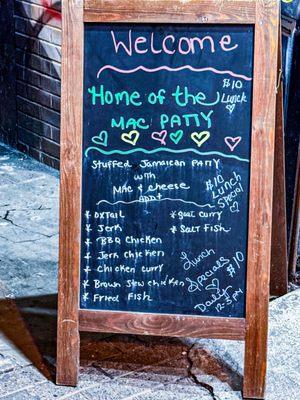 Welcome
$10
Lunch
Home of the
MAC PATTY
Stuffed Jamaican Patty
with
Mac & cheese
ADD+
$10
Lunch
Special
* OXTAIL
* Jerk
* BBQ Chicken
* Jerk chicken
* Chicken curry
* Brown Stew chicken
* Fried Fish
* goat curry
* Salt Fish
Lunch
Specials $10
Daily
12-3 pm